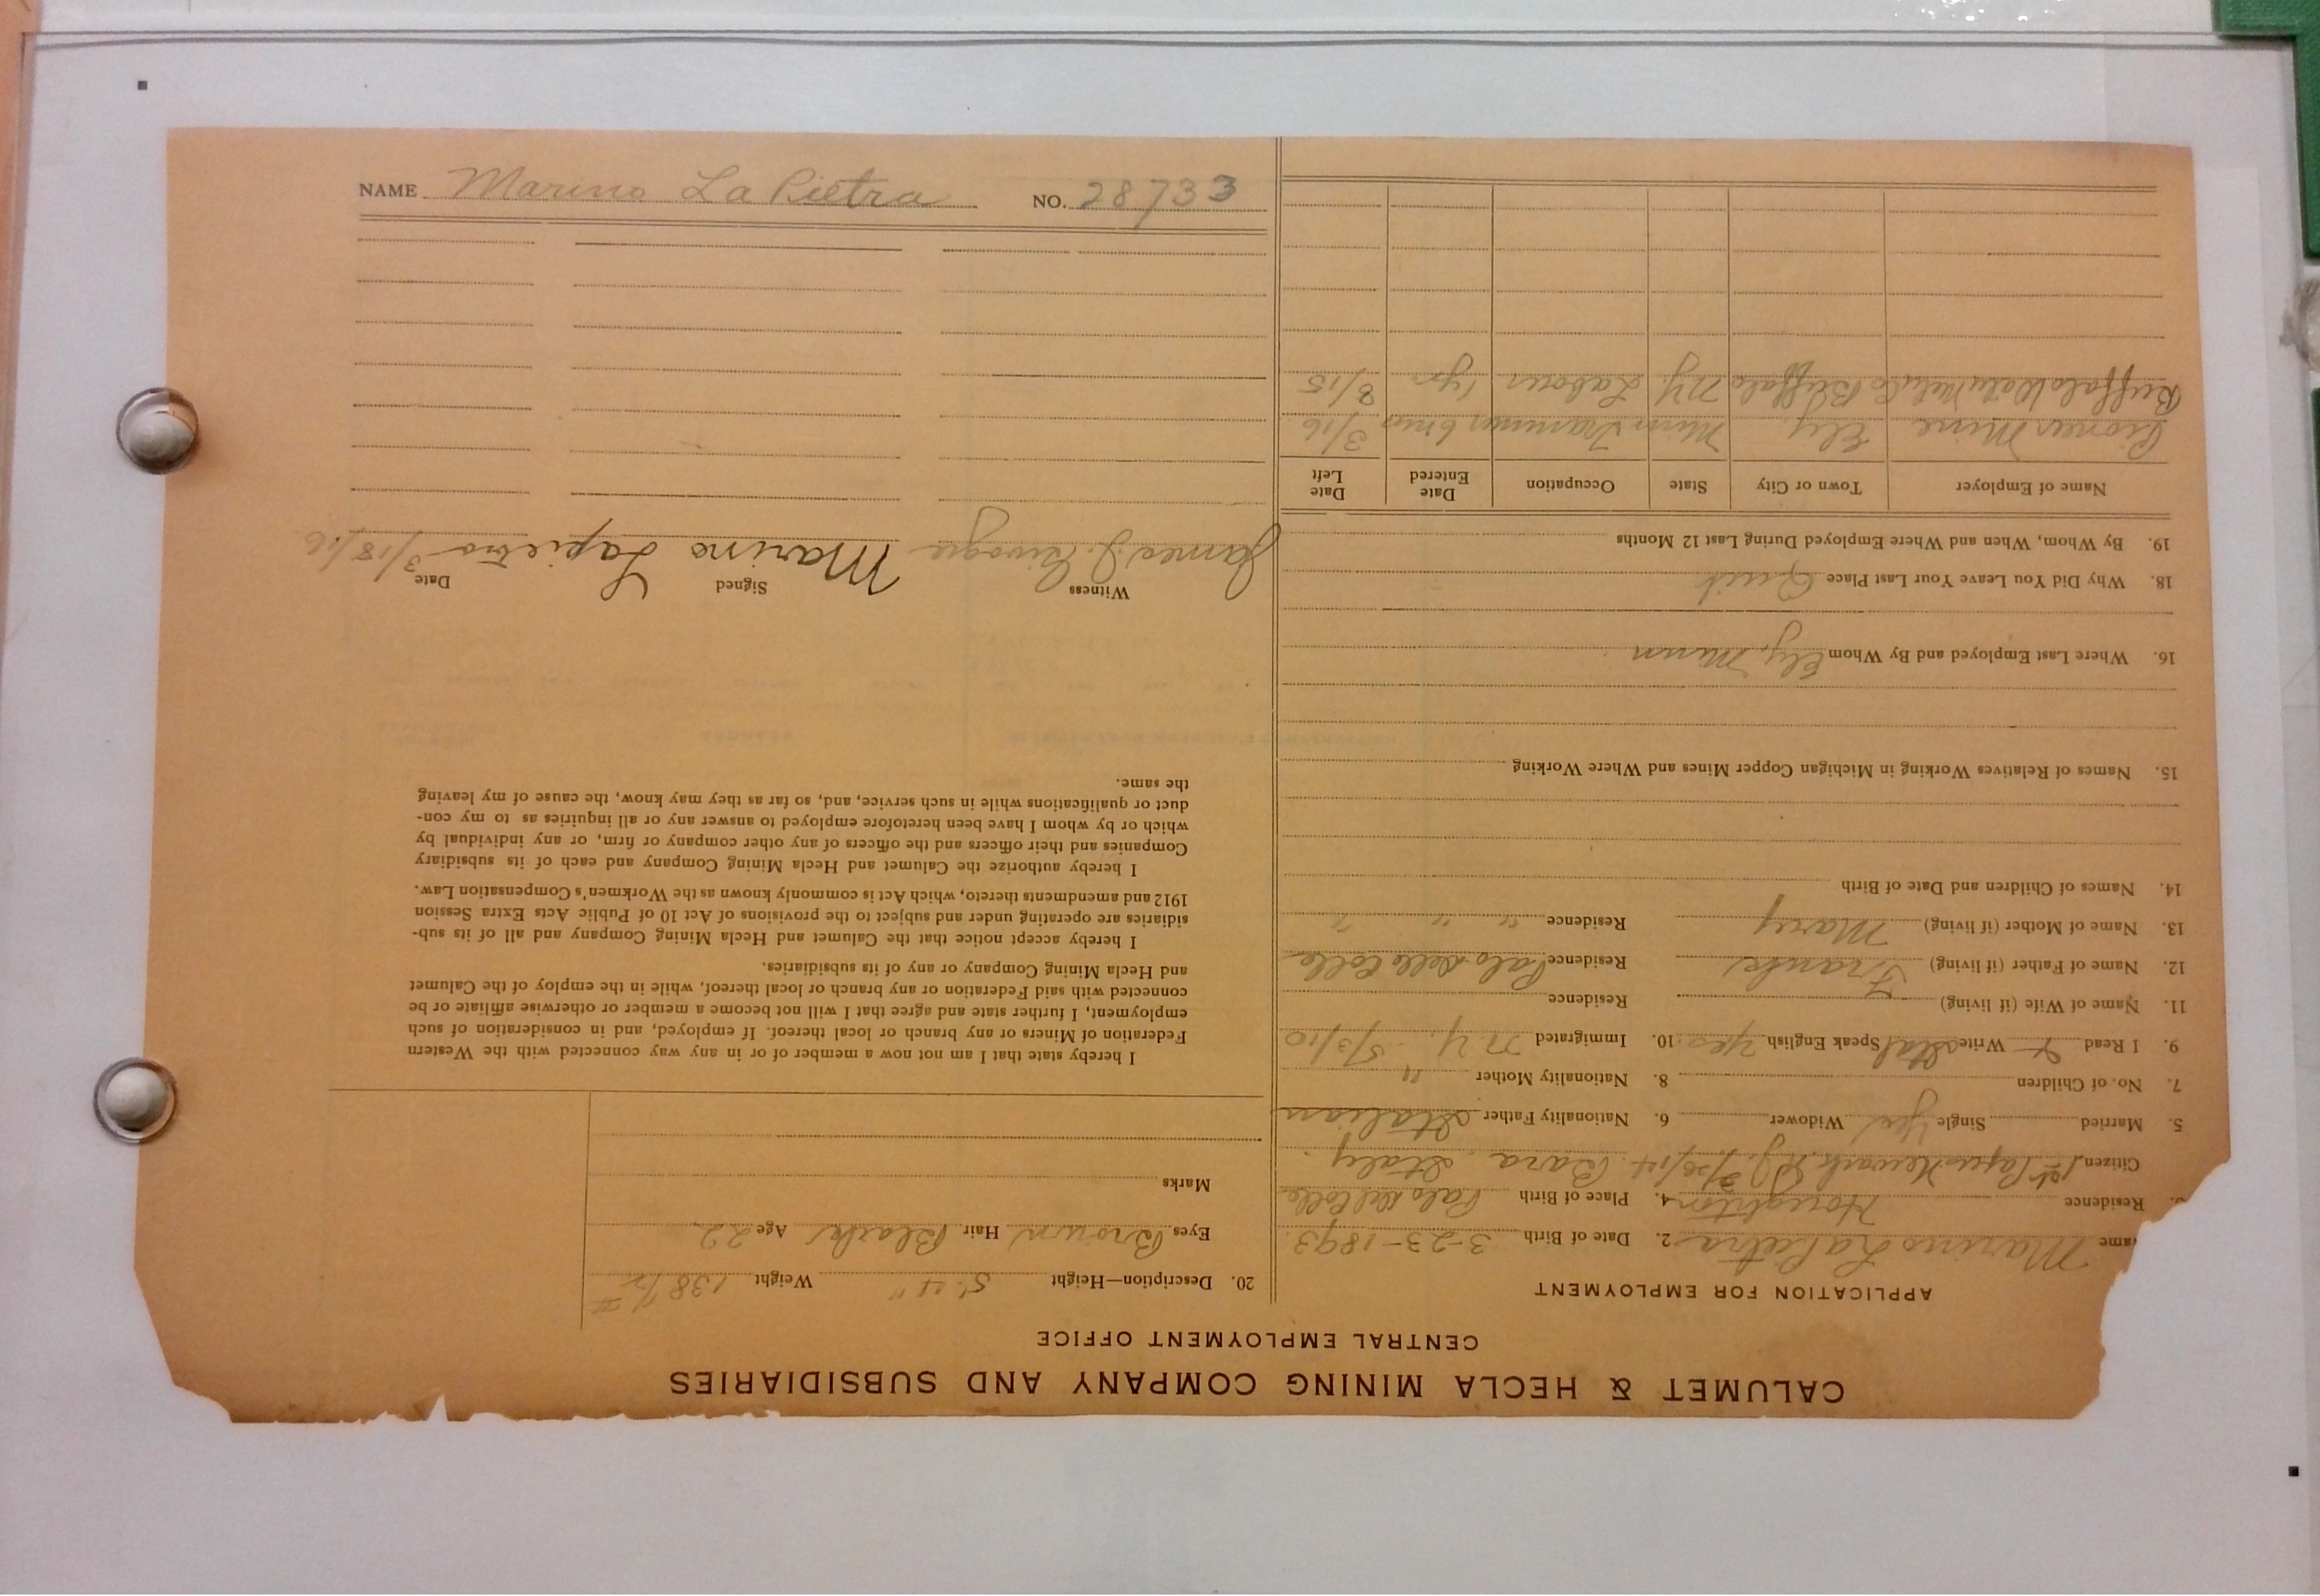 NAME Marino La Pietra NO. 28733
CALUMET & HECLA MINING COMPANY AND SUBSIDIARIES
CENTRAL EMPLOYMENT OFFICE
APPLICATION FOR EMPLOYMENT
ame Marino La Pietra 2. Date of Birth 3-23-1893
Residence Houghton 4. Place of Birth Palo Del Colle
Citizen 1st Papers Newark N.J. Bara, Italy
5. Married Single Yes Widower 6. Nationality Father Italian
7. No. of Children 8. Nationality Mother "
9. I Read & Write Ital Speak English Yes 10. Immigrated N.Y. 5/3/10
11. Name of Wife (if living) Residence
12. Name of Father (if living) Frank Residence Palo Dell Colle
13. Name of Mother (if living) Mary Residence " " "
14. Names of Children and Date of Birth
15. Names of Relatives Working in Michigan Copper Mines and Where Working
16. Where Last Employed and By Whom Ely, Minn
18. Why Did You Leave Your Last Place Quit
19. By Whom, When and Where Employed During Last 12 Months
Name of Employer Town or City State Occupation Date Entered Date Left
Pioneer Mine Ely Minn Trammer 6 mos 3/16
Buffalo Buffalo N.Y. Laborer 1 yr 8/15
20. Description—Height 5'-4" Weight 138 1/2 #
Eyes Brown Hair Black Age 22
Marks
I hereby state that I am not now a member of or in any way connected with the Western
Federation of Miners or any branch or local thereof. If employed, and in consideration of such
employment, I further state and agree that I will not become a member or otherwise affiliate or be
connected with said Federation or any branch or local thereof, while in the employ of the Calumet
and Hecla Mining Company or any of its subsidiaries.
I hereby accept notice that the Calumet and Hecla Mining Company and all of its sub-
sidiaries are operating under and subject to the provisions of Act 10 of Public Acts Extra Session
1912 and amendments thereto, which Act is commonly known as the Workmen's Compensation Law.
I hereby authorize the Calumet and Hecla Mining Company and each of its subsidiary
Companies and their officers and the officers of any other company or firm, or any individual by
which or by whom I have been heretofore employed to answer any or all inquiries as to my con-
duct or qualifications while in such service, and, so far as they may know, the cause of my leaving
the same.
Witness Signed Date
James J. Marino Lapietra 3/18/16